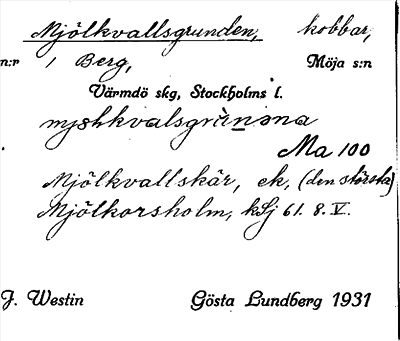 Mjölkvallsgrunden, kobbar,
n:r 1 Berg, Möja s:n
Värmdö skg, Stockholms l.
Ma 100
Mjölkvallskär, ek, (den största)
Mjölkorsholm, kSj 61. 8. V.
J. Westin Gösta Lundberg 1931